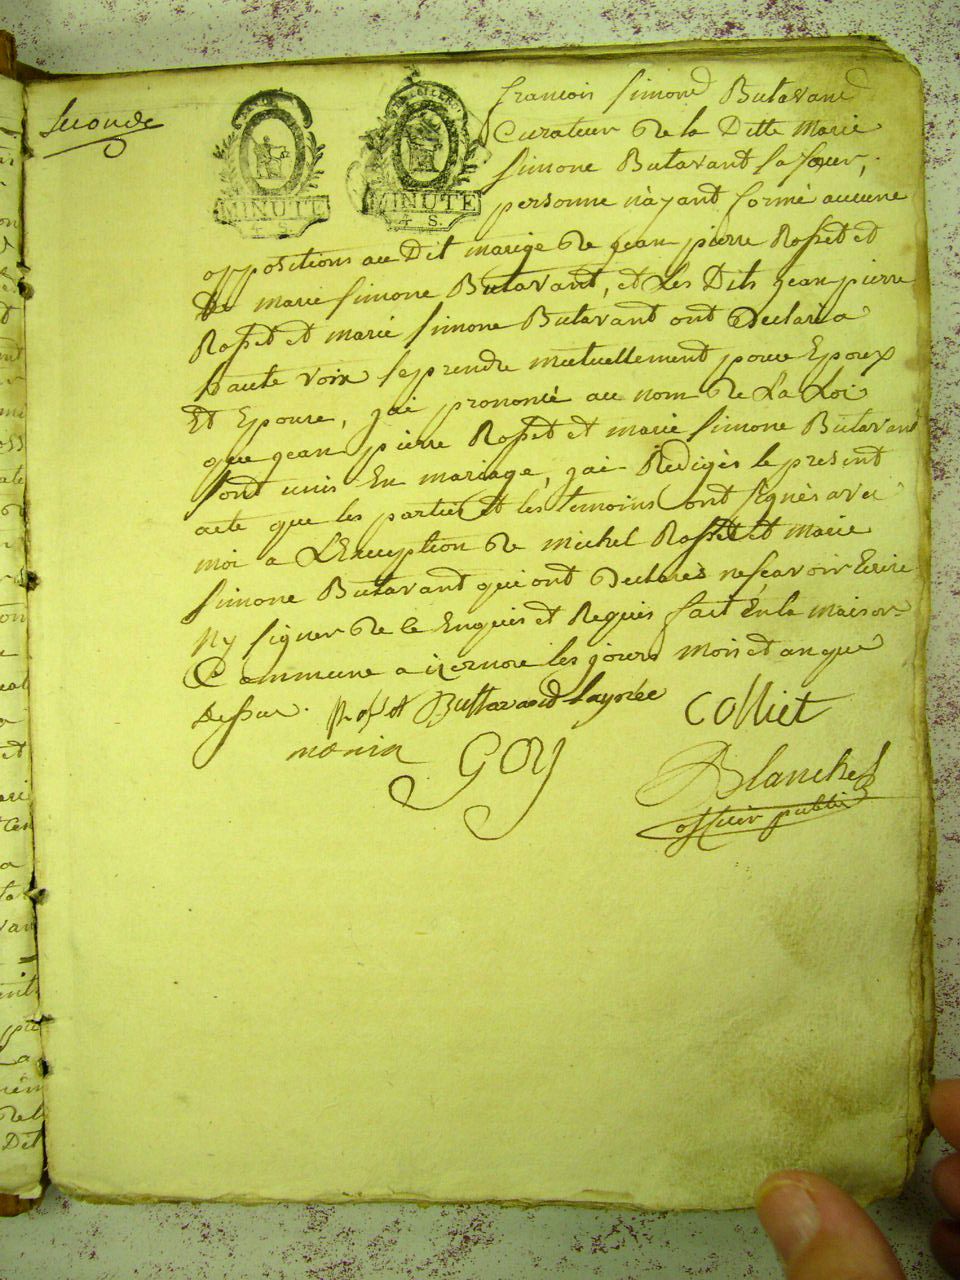 Seconde
MINUTE
4 S.
MINUTE
4 S.
francois Simond Butavand
Curateur De la Ditte Marie
Simone Butavant sa soeur,
personne n'ayant formé aucune
oppositions au Dit marige De jean pierre Rosset et
De marie Simone Butavant, et Les Dits jean pierre
Rosset et marie Simone Butavant ont Declaré a
haute voix se prendre mutuellement pour Epoux
Et Epouse, jai prononcé au nom De La Loi
que jean pierre Rosset et marie Simone Butavant
sont unis En mariage, jai Redigés le present
acte que les parties et les temoins ont signés avec
moi a L'Exception De michel Rosset et Marie
Simone Butavant qui ont Declarés ne sçavoir Ecrire
Ny signer De ce Enquis et Requis fait En la maison
Commune a izernore les jours mois et an que
Dessus. Rosset Buttavand
Colliet
GOY
Blanchet
officier public